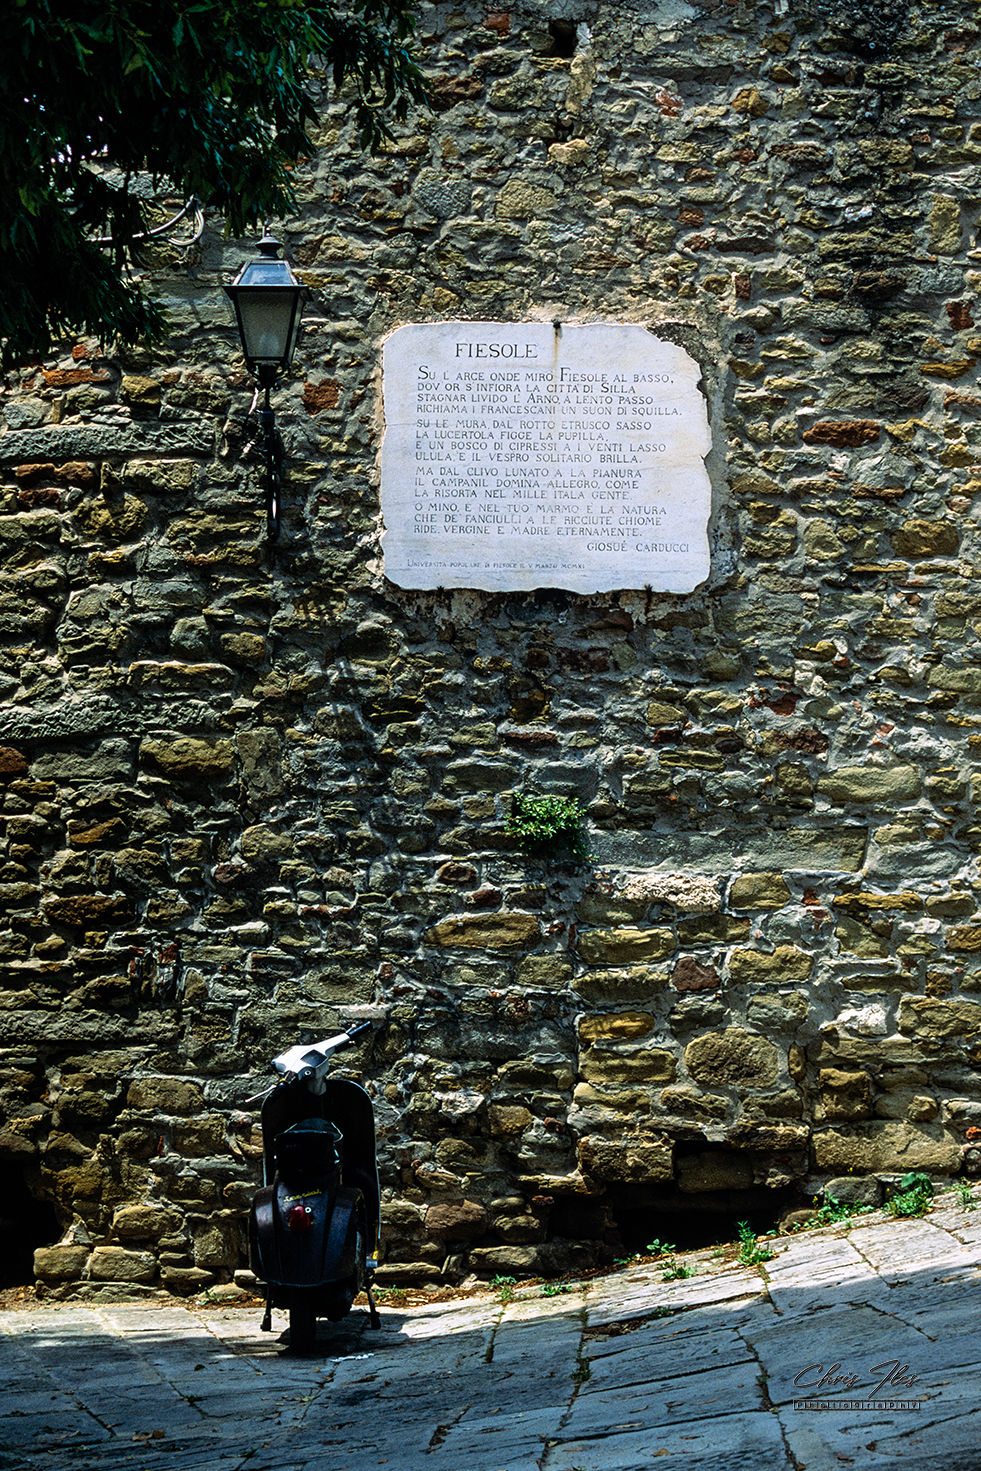 FIESOLE
SU L ARCE ONDE MIRO FIESOLE AL BASSO,
DOV OR S'INFIORA LA CITTÀ DI SILLA
STAGNAR LIVIDO L' ARNO, A LENTO PASSO
RICHIAMA I FRANCESCANI UN SUON DI SQUILLA.
SU LE MURA, DAL ROTTO ETRUSCO SASSO
LA LUCERTOLA FIGGE LA PUPILLA,
E UN BOSCO DI CIPRESSI A I VENTI LASSO
ULULA, E IL VESPRO SOLITARIO BRILLA.
MA DAL CLIVO LUNATO A LA PIANURA
IL CAMPANIL DOMINA ALLEGRO, COME
LA RISORTA NEL MILLE ITALA GENTE.
O MINO, E NEL TUO MARMO E LA NATURA
CHE DE' FANCIULLI A LE RICCIUTE CHIOME
RIDE, VERGINE E MADRE ETERNAMENTE.
GIOSUÈ CARDUCCI
UNIVERSITÀ POPOLARE DI FIESOLE IL V MARZO MCMXI
Chris Iles
PHOTOGRAPHY